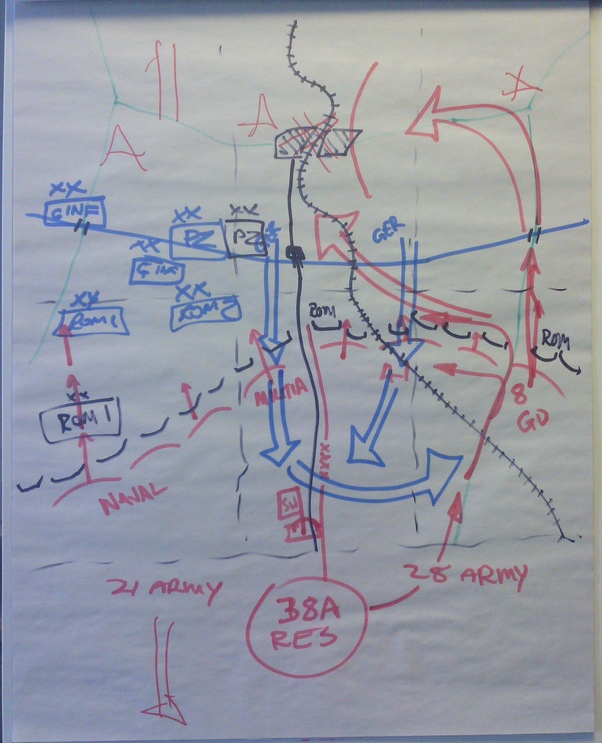 A
A
A
XX
G INF
XX
PZ
XX
PZ
XX
G INF
XX
ROM 2
XX
ROM 1
XX
ROM 1
GER
ROM
ROM
MILITIA
NAVAL
8
GD
XXXX
21 ARMY
28 ARMY
38A
RES